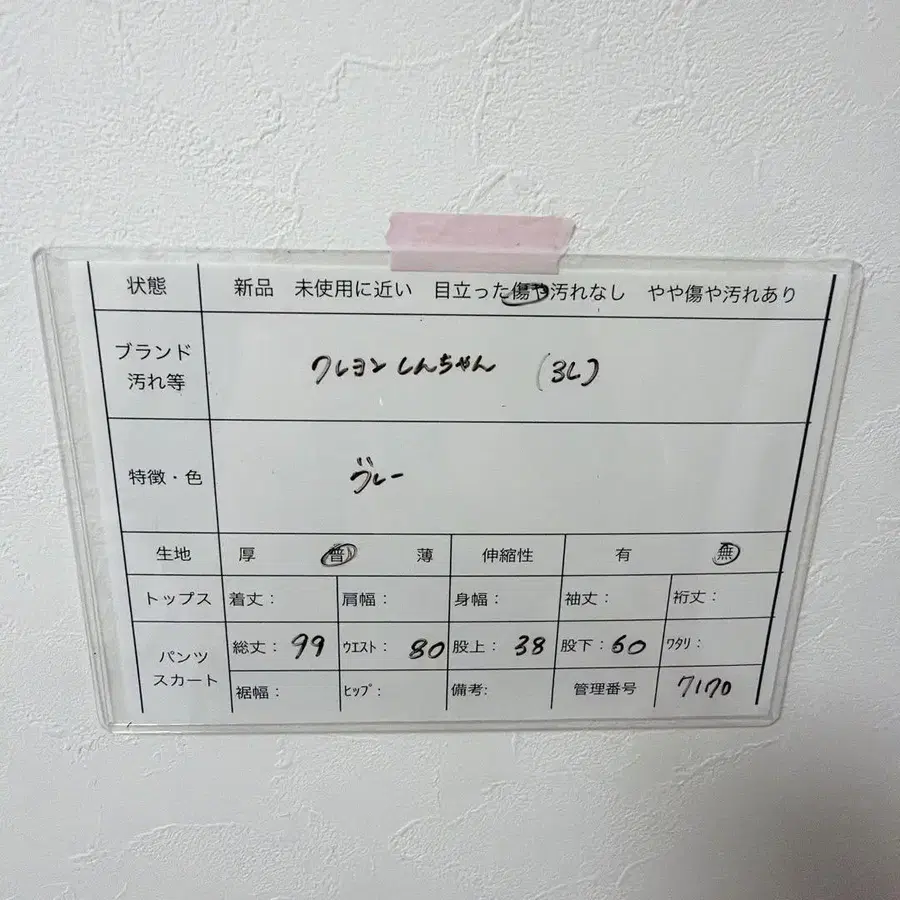 状態 新品 未使用に近い 目立った傷や汚れなし やや傷や汚れあり
ブランド
汚れ等
クレヨンしんちゃん (3L)
特徴・色 グレー
生地 厚 普 薄 伸縮性 有 無
トップス 着丈： 肩幅： 身幅： 袖丈： 裄丈：
パンツ
スカート
総丈：99 ウエスト：80 股上：38 股下：60 ワタリ：
裾幅： ヒップ： 備考: 管理番号 7170